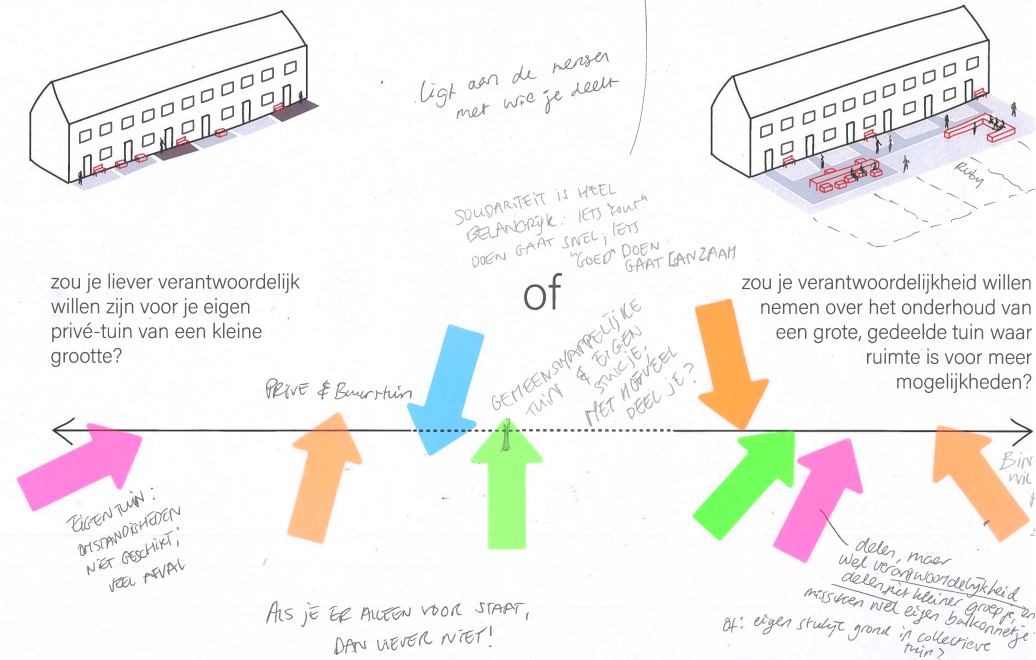 ligt aan de mensen
met wie je deelt
Ruby
SOLIDARITEIT IS HEEL
BELANGRIJK: IETS "FOUT"
DOEN GAAT SNEL; IETS
"GOED" DOEN
GAAT LANGZAAM
zou je liever verantwoordelijk
willen zijn voor je eigen
privé-tuin van een kleine
grootte?
of
zou je verantwoordelijkheid willen
nemen over het onderhoud van
een grote, gedeelde tuin waar
ruimte is voor meer
mogelijkheden?
PRIVE & Buurttuin
GEMEENSCHAPPELIJKE
TUIN & EIGEN
STUKJE.
MET HOEVEEL
DEEL JE?
EIGEN TUIN:
OMSTANDIGHEDEN
NIET GESCHIKT;
VEEL AFVAL
ALS JE ER ALLEEN VOOR STAAT,
DAN LIEVER NIET!
BIN
WIL
delen, maar
wel verantwoordelijkheid
delen met kleiner groepje, en
misschien wel eigen balkonnetje
of: eigen stukje grond in collectieve
tuin?